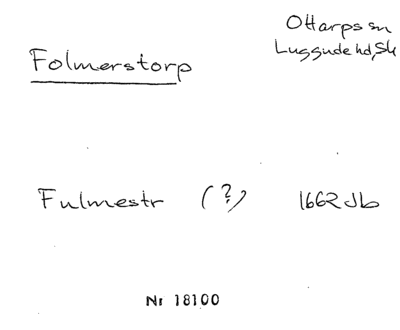 Folmerstorp
Ottarps sn
Luggude hd, Sk
Fulmestr (?) 1662 Jb
Nr 18100